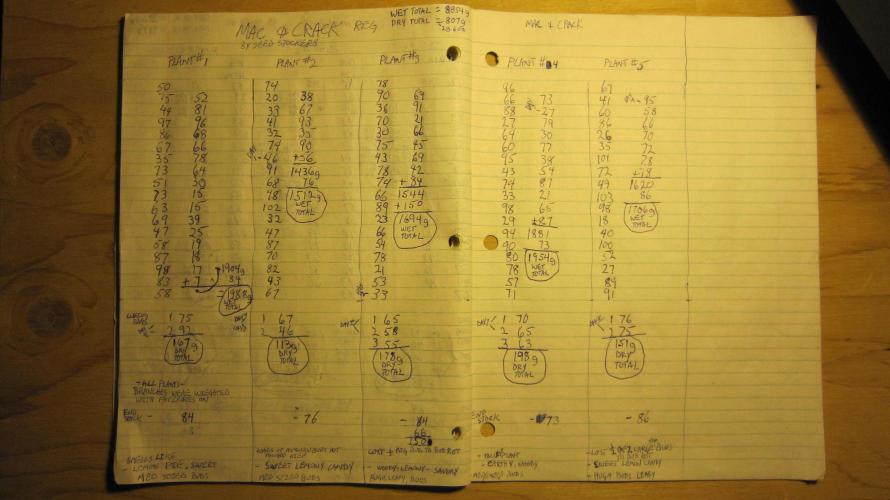 MAC & CRACK REG
BY SEED STOCKERS
WET TOTAL = 8854g
DRY TOTAL = 807g
MAC & CRACK
PLANT #1
50
75 52
44 81
97 96
86 68
67 66
35 78
73 64
51 30
73 15
63 15
69 39
47 25
58 19
87 18
98 17 1904g
83 + 7 84
58 = 1988g
WET
TOTAL
1 75
2 92
167g
DRY
TOTAL
- ALL PLANTS -
BRANCHES WERE WEIGHED
END
STOCK - 84
- SMELLS LIKE
- LEMON PEEL, SWEET
MED SIZED BUDS
PLANT #2
74
20 38
39 67
41 93
32 35
74 90
46 +56
91 1436g
68 76
48 1512g
102 WET
32 TOTAL
47
87
70
82
43
67
1 67
2 46
113g
DRY
TOTAL
- 76
- SWEET LEMONY CANDY
MED SIZED BUDS
PLANT #3
78
90 64
36 91
70 21
30 66
75 45
43 69
78 42
74 + 84
66 1544
89 + 150
23 1694g
66 WET
54 TOTAL
78
21
53
33
DAY 1 65
2 58
3 55
178g
DRY
TOTAL
- 84
66
150
- WOODY - LEMON - SAVORY
HUGE LEAFY BUDS
PLANT #4
96
66 73
88 27
27 79
64 30
60 77
95 38
43 54
74 81
33 21
98 65
29 +87
94 1881
90 73
80 1954g
78 WET
57 TOTAL
71
DAY 1 70
2 65
3 63
198g
DRY
TOTAL
END
STOCK - 73
- EARTHY, WOODY
MED SIZED BUDS
PLANT #5
67
41 95
60 58
86 66
26 70
35 72
101 78
72 + 18
49 1620
103 86
98 1706g
18 WET
40 TOTAL
100
52
27
89
91
1 76
2 75
151g
DRY
TOTAL
- 86
- SWEET LEMON CANDY
- HUGE BUDS LEAFY